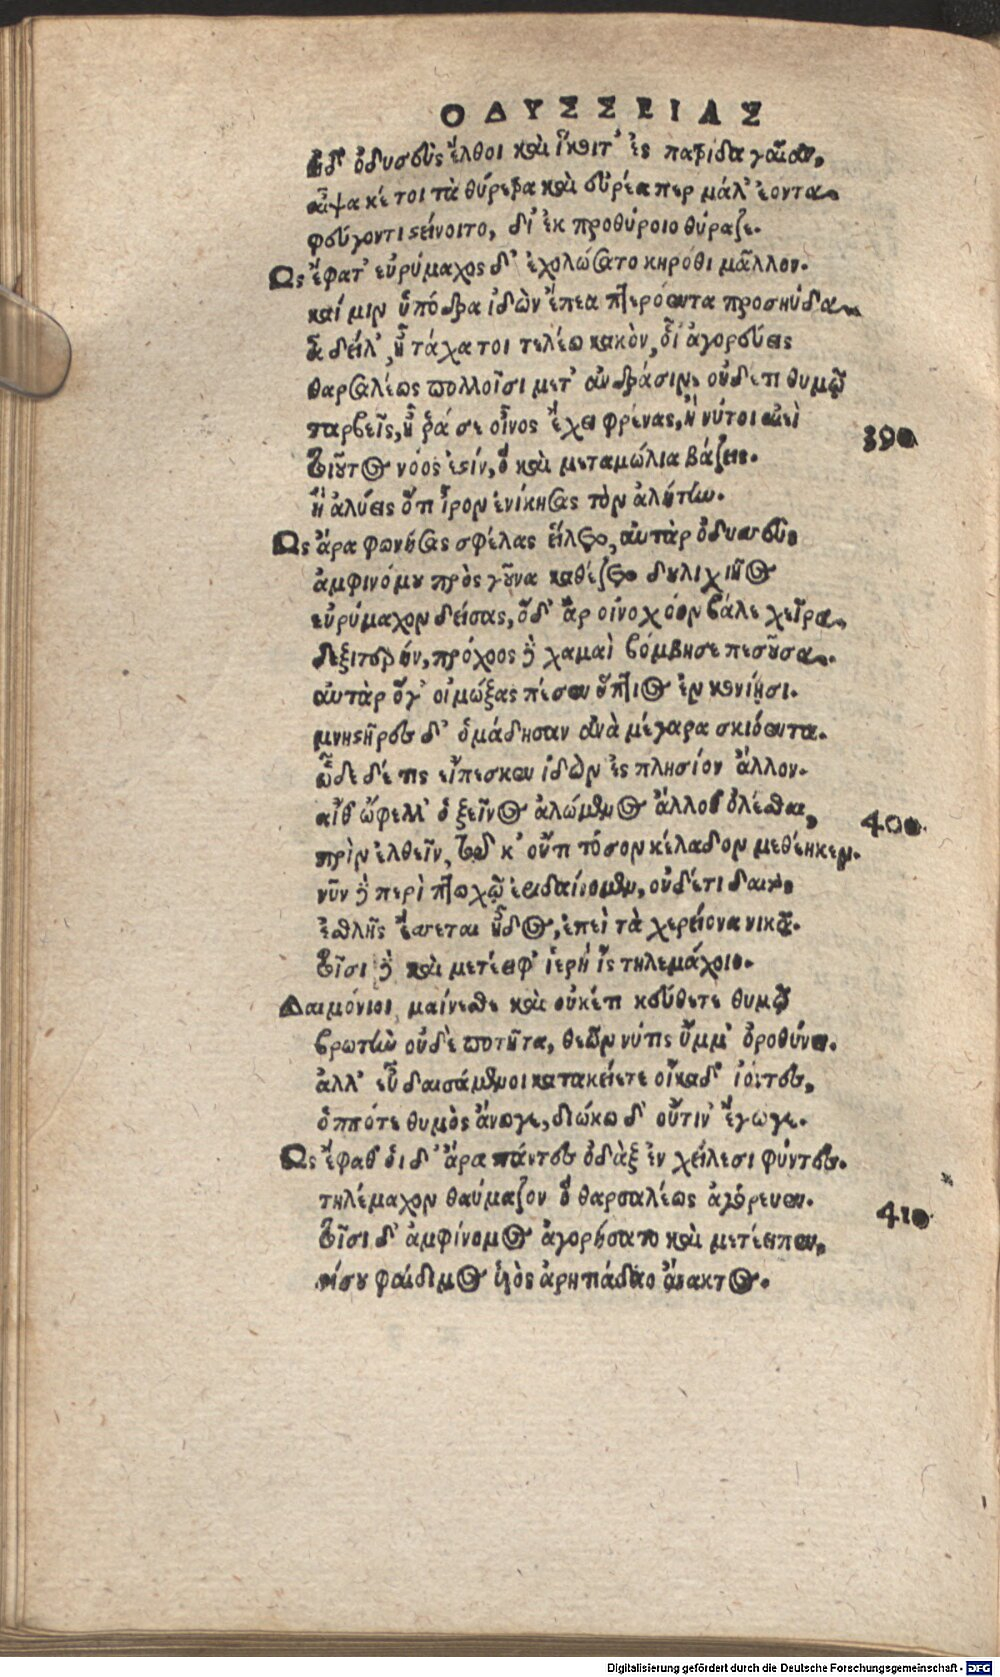 ΟΔΥΣΣΕΙΑΣ
εἰ δ' ὀδυσεὺς ἔλθοι καὶ ἵκοιτ' ἐς πατρίδα γαῖαν,
αἶψα κέ τοι τὰ θύρετρα καὶ εὐρέα περ μάλ' ἐόντα
φεύγοντι στείνοιτο, δι' ἐκ προθύροιο θύραζε.
Ὣς ἔφατ' εὐρύμαχος δ' ἐχολώσατο κηρόθι μᾶλλον.
καί μιν ὑπόδρα ἰδὼν ἔπεα πτερόεντα προσηύδα
ἆ δείλ', ἦ τάχα τοι τελέω κακὸν, οἷ' ἀγορεύεις
θαρσαλέως πολλοῖσι μετ' ἀνδράσιν, οὐδέ τι θυμῷ
ταρβεῖς, ἦ ῥά σε οἶνος ἔχει φρένας, ἤ νύ τοι αἰεὶ
390
τοιοῦτος νόος ἐστίν, ὃ καὶ μεταμώλια βάζεις.
ἢ ἀλύεις ὅτι ἶρον ἐνίκησας τὸν ἀλήτην.
Ὣς ἄρα φωνήσας σφέλας εἵλετο, αὐτὰρ ὀδυσσεὺς
ἀμφινόμου πρὸς γοῦνα καθέζετο δουλιχιῆος
εὐρύμαχον δείσας, ὁ δ' ἄρ οἰνοχόον βάλε χεῖρα
δεξιτερήν, πρόχοος δὲ χαμαὶ βόμβησε πεσοῦσα.
αὐτὰρ ὅγ' οἰμώξας πέσεν ὕπτιος ἐν κονίῃσι.
μνηστῆρες δ' ὁμάδησαν ἀνὰ μέγαρα σκιόεντα.
ὧδε δέ τις εἴπεσκεν ἰδὼν ἐς πλησίον ἄλλον.
αἴθ' ὤφελλ' ὁ ξεῖνος ἀλώμενος ἄλλοθ' ὀλέσθαι,
400
πρὶν ἐλθεῖν, τῷ κ' οὔτι τόσον κέλαδον μεθέηκεν.
νῦν δὲ περὶ πτωχῷ ἐριδαίνομεν, οὐδέ τι δαιτὸς
ἐσθλῆς ἔσσεται ἦδος, ἐπεὶ τὰ χερείονα νικᾷ.
τοῖσι δὲ καὶ μετέειφ' ἱερὴ ἲς τηλεμάχοιο.
Δαιμόνιοι μαίνεσθε καὶ οὐκέτι κεύθετε θυμῷ
βρωτὺν οὐδὲ ποτῆτα, θεῶν νύ τις ὔμμ' ὀροθύνει.
ἀλλ' εὖ δαισάμενοι κατακείετε οἴκαδ' ἰόντες,
ὁππότε θυμὸς ἄνωγε, διώκω δ' οὔτιν' ἔγωγε.
Ὣς ἔφαθ' οἱ δ' ἄρα πάντες ὀδὰξ ἐν χείλεσι φύντες.
τηλέμαχον θαύμαζον ὃ θαρσαλέως ἀγόρευεν.
410
τοῖσι δ' ἀμφίνομος ἀγορήσατο καὶ μετέειπεν,
νίσου φαίδιμος υἱὸς ἀρητιάδαο ἄνακτος.
Digitalisierung gefördert durch die Deutsche Forschungsgemeinschaft - DFG